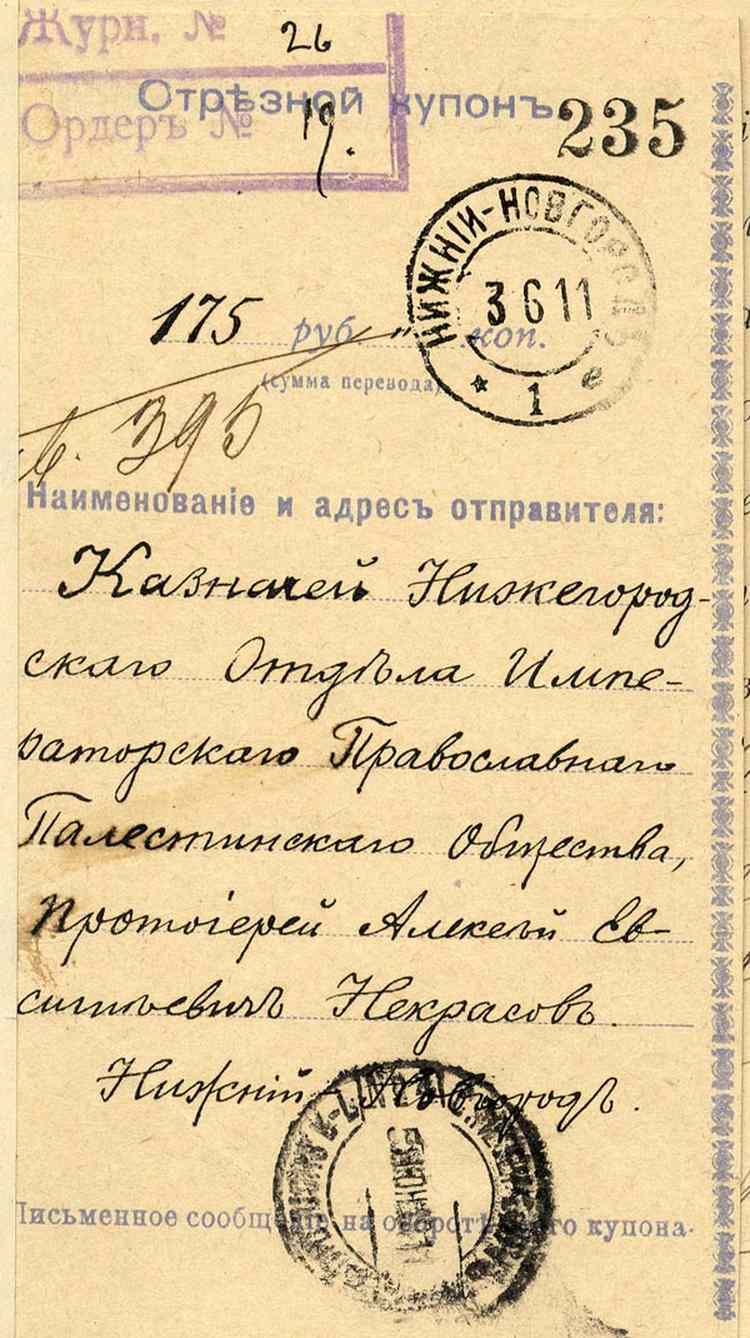 Журн. № 26
Отрѣзной купонъ
235
Ордеръ № 19.
НИЖНІЙ-НОВГОРОДЪ
3 6 11
* 1 е
175 руб. " коп.
(сумма перевода)
395
Наименованіе и адресъ отправителя:
Казначей Нижегород-
скаго Отдѣла Импе-
раторскаго Православнаго
Палестинскаго Общества,
Протоіерей Алексѣй Ев-
ситѣевичъ Некрасовъ.
Нижній-Новгородъ.
Письменное сообщеніе на оборотѣ купона.